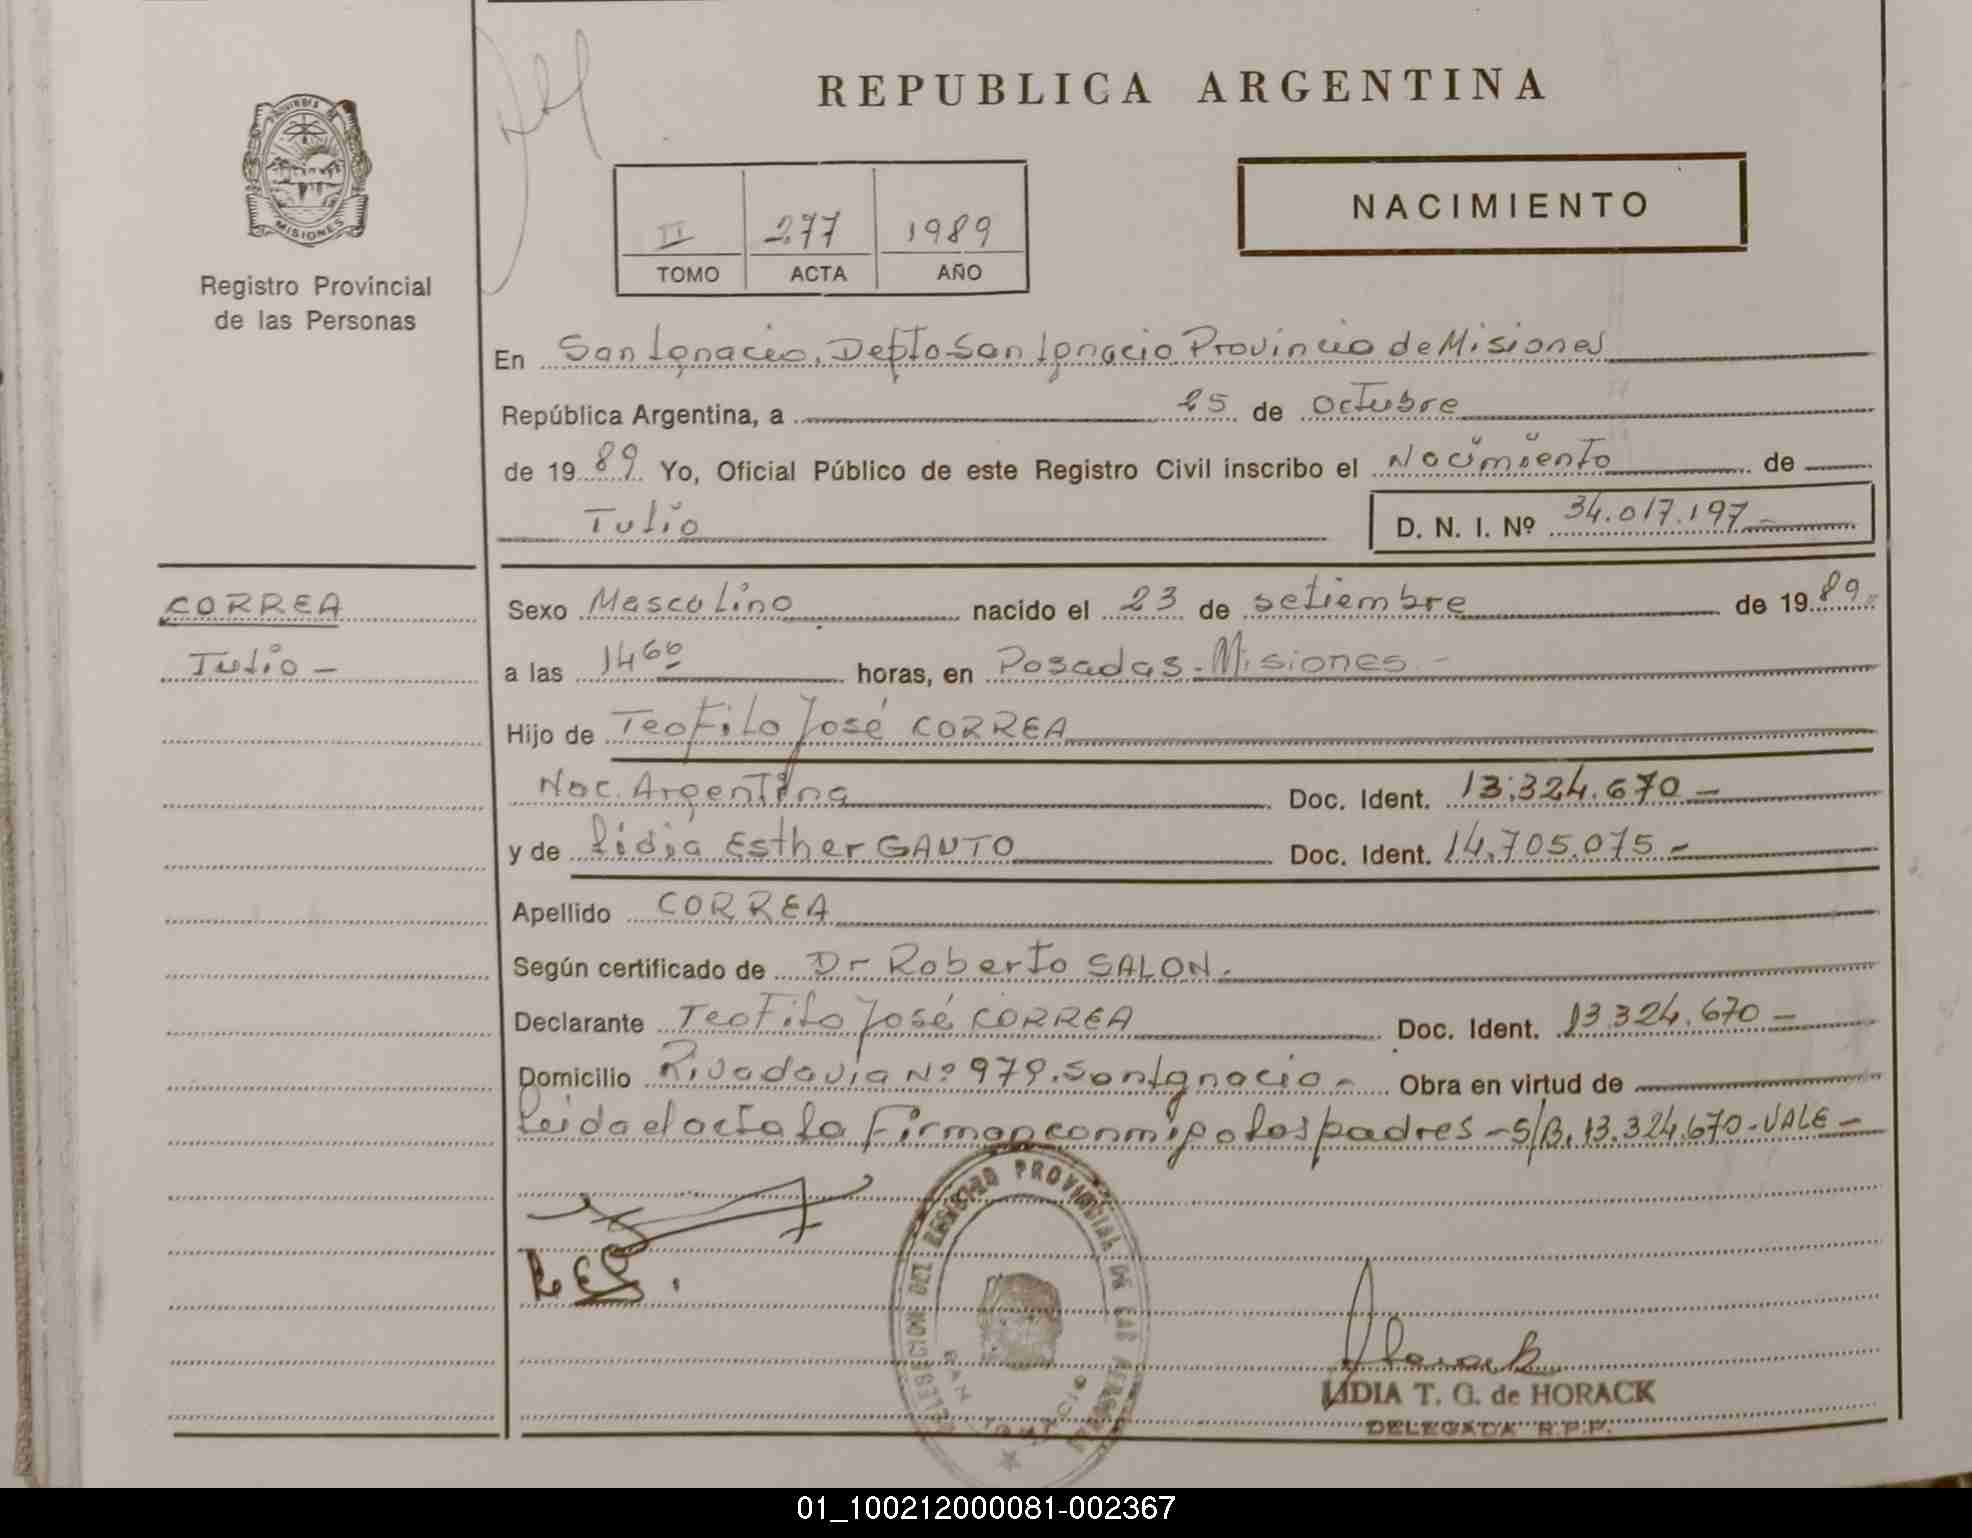 REPUBLICA ARGENTINA
PROVINCIA DE
MISIONES
Registro Provincial
de las Personas
II 277 1989
TOMO ACTA AÑO
NACIMIENTO
En San Ignacio, Depto San Ignacio Provincia de Misiones
República Argentina, a 25 de octubre
de 1989 Yo, Oficial Público de este Registro Civil inscribo el Nacimiento de
Tulio
D. N. I. Nº 34.017.197-
CORREA
Tulio -
Sexo Masculino nacido el 23 de setiembre de 1989
a las 14 00 horas, en Posadas-Misiones-
Hijo de Teofilo José CORREA
Nac. Argentina Doc. Ident. 13.324.670-
y de Lidia Esther GAUTO Doc. Ident. 14.705.075-
Apellido CORREA
Según certificado de Dr Roberto SALON.
Declarante Teofilo José CORREA Doc. Ident. 13.324.670-
Domicilio Rivadavia Nº 979. San Ignacio- Obra en virtud de
Leida el acta la Firman conmigo los padres - S/B. 13.324.670-VALE-
DELEGACION DEL REGISTRO PROVINCIAL DE LAS PERSONAS
SAN IGNACIO
LIDIA T. G. de HORACK
DELEGADA R.P.P.
01_100212000081-002367